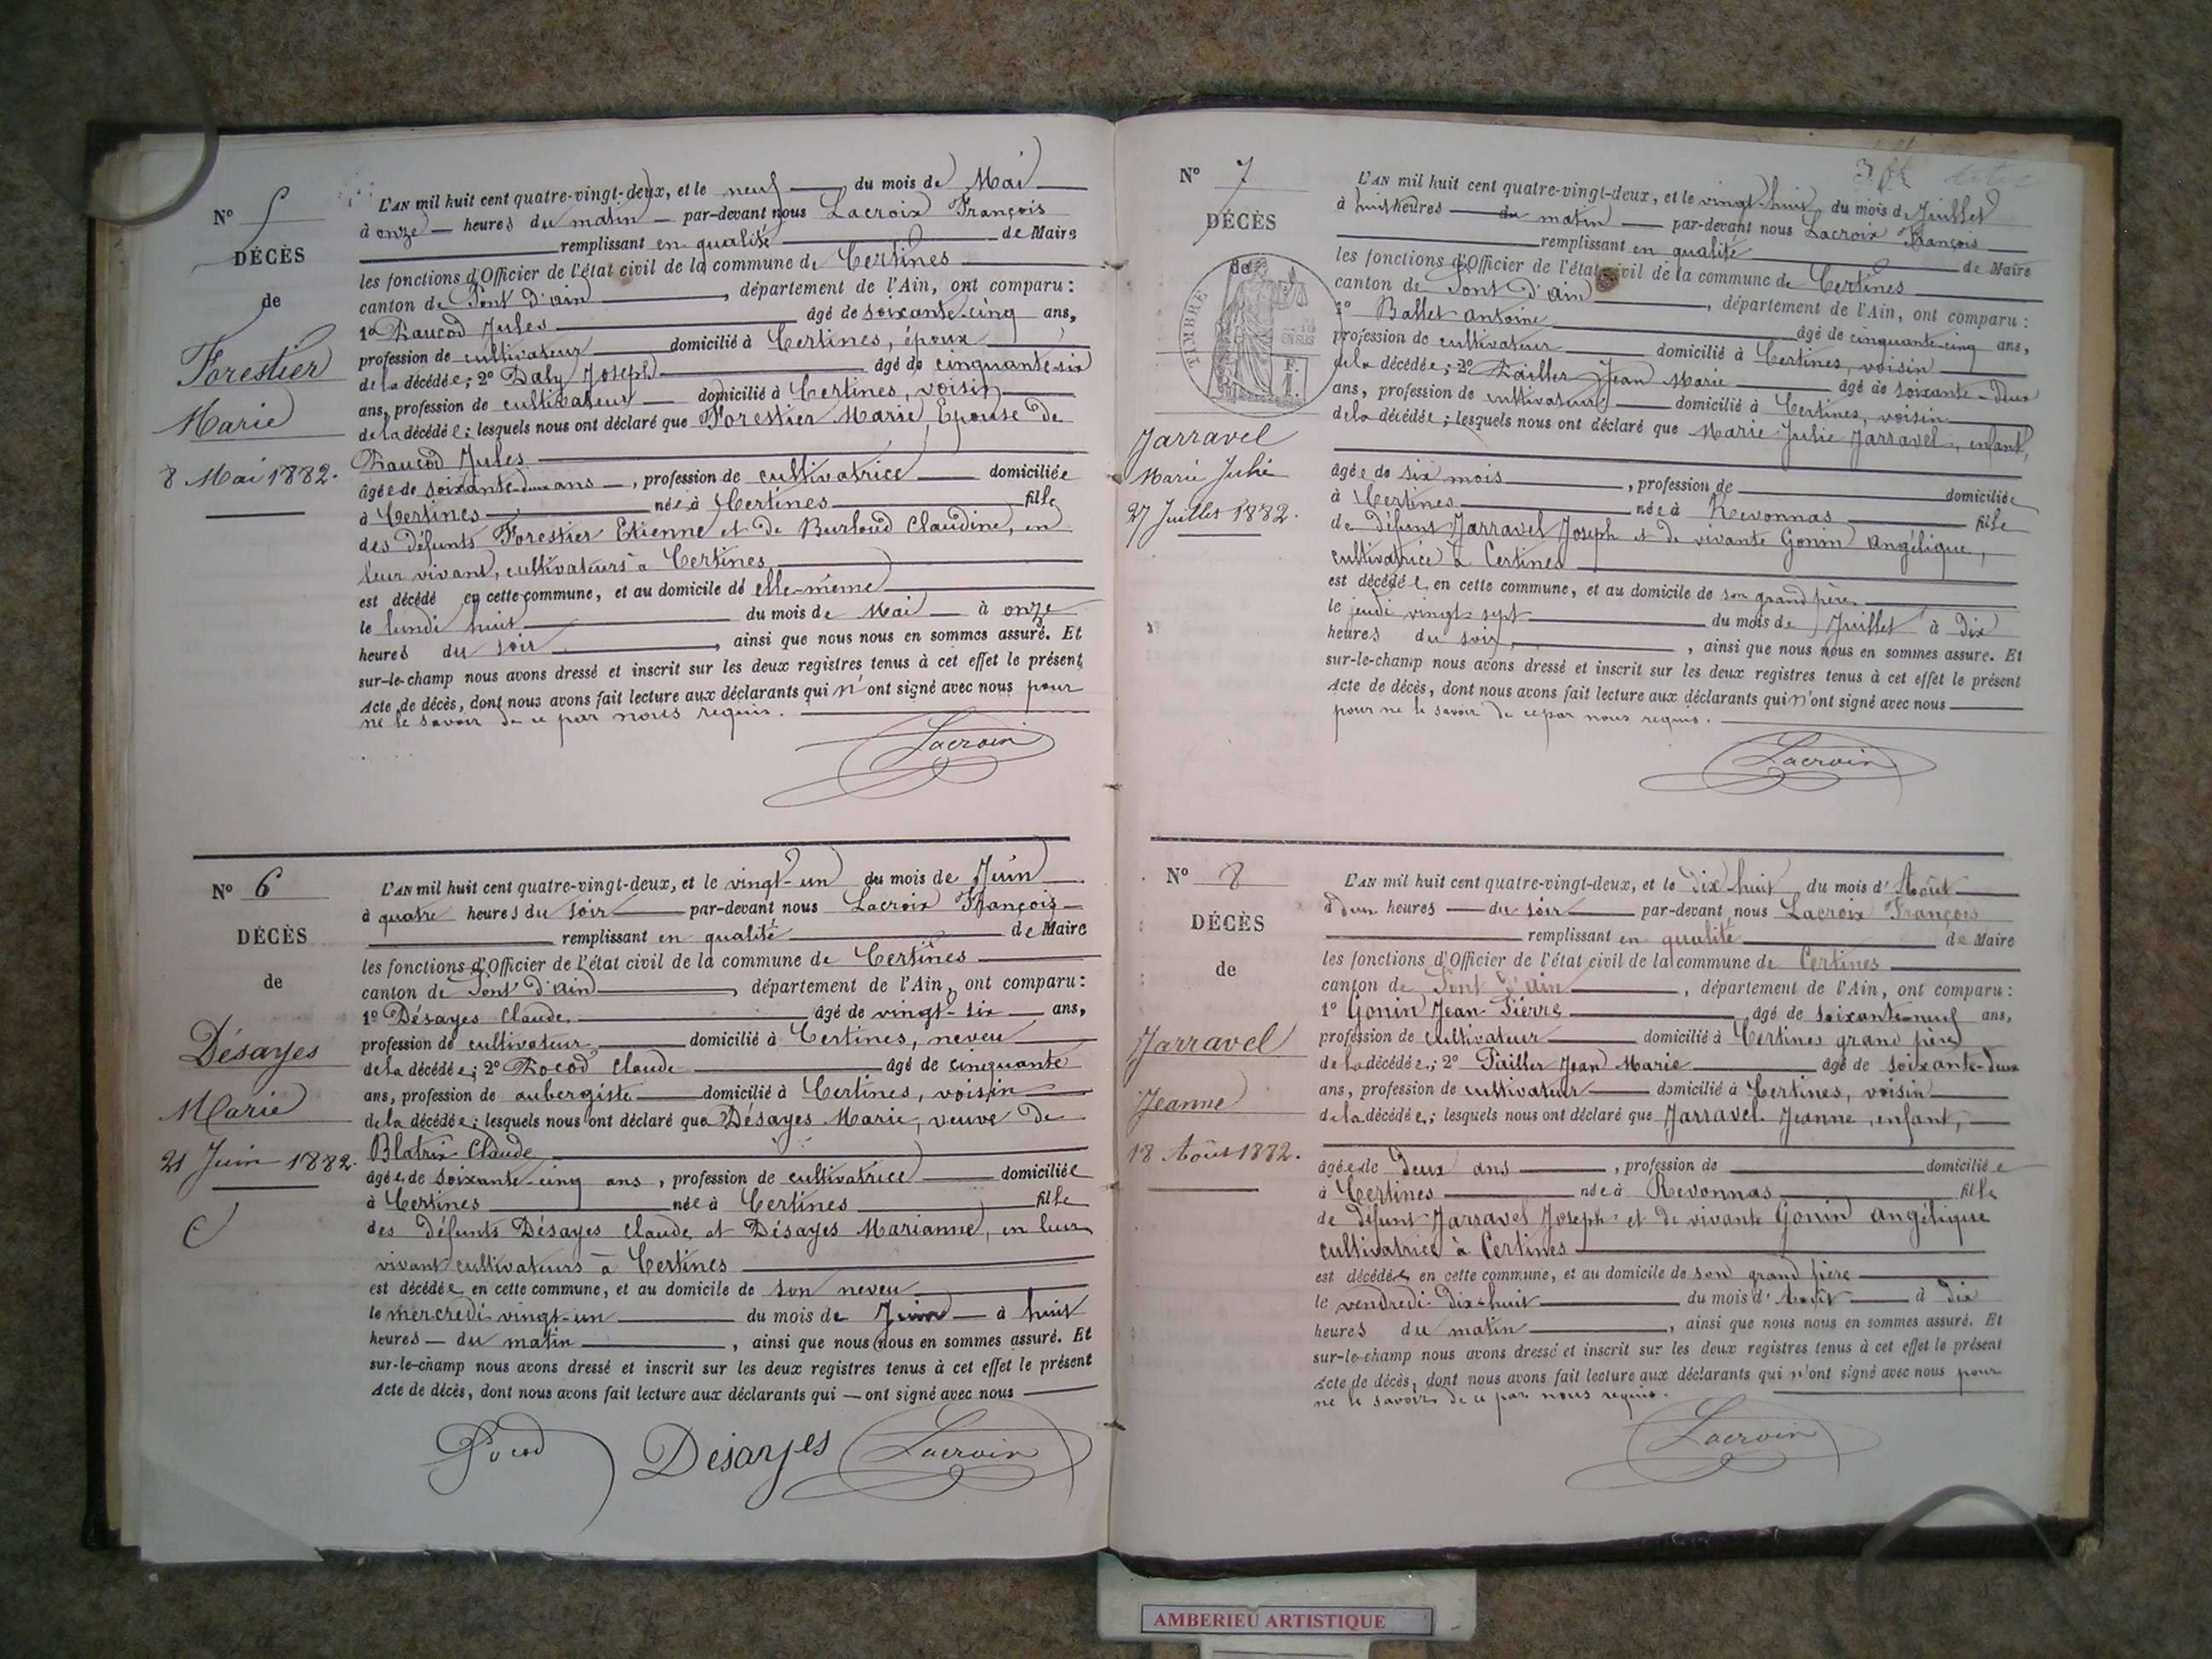 N° 5
DÉCÈS
de
Forestier
Marie
8 Mai 1882.
L'AN mil huit cent quatre-vingt-deux, et le neuf du mois de Mai
à onze heures du matin par-devant nous Lacroix François
remplissant en qualité de Maire
les fonctions d'Officier de l'état civil de la commune de Certines
canton de Pont d'ain, département de l'Ain, ont comparu :
1° Raucod Jules âgé de soixante-cinq ans,
profession de cultivateur domicilié à Certines, époux
de la décédée; 2° Daly Joseph âgé de cinquante-six
ans, profession de cultivateur domicilié à Certines, voisin
de la décédée; lesquels nous ont déclaré que Forestier Marie, Epouse de
Raucod Jules
âgée de soixante-deux ans, profession de cultivatrice domiciliée
à Certines née à Certines fille
des défunts Forestier Etienne et de Burloud Claudine, en
leur vivant, cultivateurs à Certines
est décédé en cette commune, et au domicile de elle-même
le lundi huit du mois de Mai à onze
heures du soir, ainsi que nous nous en sommes assuré. Et
sur-le-champ nous avons dressé et inscrit sur les deux registres tenus à cet effet le présent
Acte de décès, dont nous avons fait lecture aux déclarants qui n'ont signé avec nous pour
ne le savoir de ce par nous requis.
Lacroix
N° 6
DÉCÈS
de
Désayes
Marie
21 Juin 1882.
L'AN mil huit cent quatre-vingt-deux, et le vingt-un du mois de Juin
à quatre heures du soir par-devant nous Lacroix François
remplissant en qualité de Maire
les fonctions d'Officier de l'état civil de la commune de Certines
canton de Pont d'ain, département de l'Ain, ont comparu :
1° Désayes Claude, âgé de vingt-six ans,
profession de cultivateur domicilié à Certines, neveu
de la décédée; 2° Rocod Claude âgé de cinquante
ans, profession de aubergiste domicilié à Certines, voisin
de la décédée; lesquels nous ont déclaré que Désayes Marie, veuve de
Blatrix Claude
âgée de soixante-cinq ans, profession de cultivatrice domiciliée
à Certines née à Certines fille
des défunts Désayes Claude et Désayes Marianne, en leur
vivant cultivateurs à Certines
est décédée en cette commune, et au domicile de son neveu
le mercredi vingt-un du mois de Juin à huit
heures du matin, ainsi que nous nous en sommes assuré. Et
sur-le-champ nous avons dressé et inscrit sur les deux registres tenus à cet effet le présent
Acte de décès, dont nous avons fait lecture aux déclarants qui ont signé avec nous
Rocod Désayes Lacroix
N° 7
DÉCÈS
de
TIMBRE
F.
1.
Jarravel
Marie Julie
27 Juillet 1882.
L'AN mil huit cent quatre-vingt-deux, et le vingt-huit du mois de Juillet
à huit heures du matin par-devant nous Lacroix François
remplissant en qualité de Maire
les fonctions d'Officier de l'état civil de la commune de Certines
canton de Pont d'ain, département de l'Ain, ont comparu :
1° Ballet Antoine âgé de cinquante-cinq ans,
profession de cultivateur domicilié à Certines, voisin
de la décédée; 2° Pailler Jean Marie âgé de soixante-deux
ans, profession de cultivateur domicilié à Certines, voisin
de la décédée; lesquels nous ont déclaré que Marie Julie Jarravel, enfant,
âgée de six mois, profession de domiciliée
à Certines née à Revonnas fille
de défunt Jarravel Joseph et de vivante Gonin Angélique,
cultivatrice à Certines
est décédée en cette commune, et au domicile de son grand père
le jeudi vingt-sept du mois de Juillet à dix
heures du soir, ainsi que nous nous en sommes assuré. Et
sur-le-champ nous avons dressé et inscrit sur les deux registres tenus à cet effet le présent
Acte de décès, dont nous avons fait lecture aux déclarants qui n'ont signé avec nous
pour ne le savoir de ce par nous requis.
Lacroix
N° 8
DÉCÈS
de
Jarravel
Jeanne
18 Août 1882.
L'AN mil huit cent quatre-vingt-deux, et le dix huit du mois d'Août
à deux heures du soir par-devant nous Lacroix François
remplissant en qualité de Maire
les fonctions d'Officier de l'état civil de la commune de Certines
canton de Pont d'ain, département de l'Ain, ont comparu :
1° Gonin Jean Pierre âgé de soixante-neuf ans,
profession de cultivateur domicilié à Certines grand père
de la décédée; 2° Pailler Jean Marie âgé de soixante-deux
ans, profession de cultivateur domicilié à Certines, voisin
de la décédée; lesquels nous ont déclaré que Jarravel Jeanne, enfant,
âgée de deux ans, profession de domiciliée
à Certines née à Revonnas fille
de défunt Jarravel Joseph et de vivante Gonin Angélique
cultivatrice à Certines
est décédée en cette commune, et au domicile de son grand père
le vendredi dix-huit du mois d'Août à dix
heures du matin, ainsi que nous nous en sommes assuré. Et
sur-le-champ nous avons dressé et inscrit sur les deux registres tenus à cet effet le présent
Acte de décès, dont nous avons fait lecture aux déclarants qui n'ont signé avec nous pour
ne le savoir de ce par nous requis.
Lacroix
AMBERIEU ARTISTIQUE